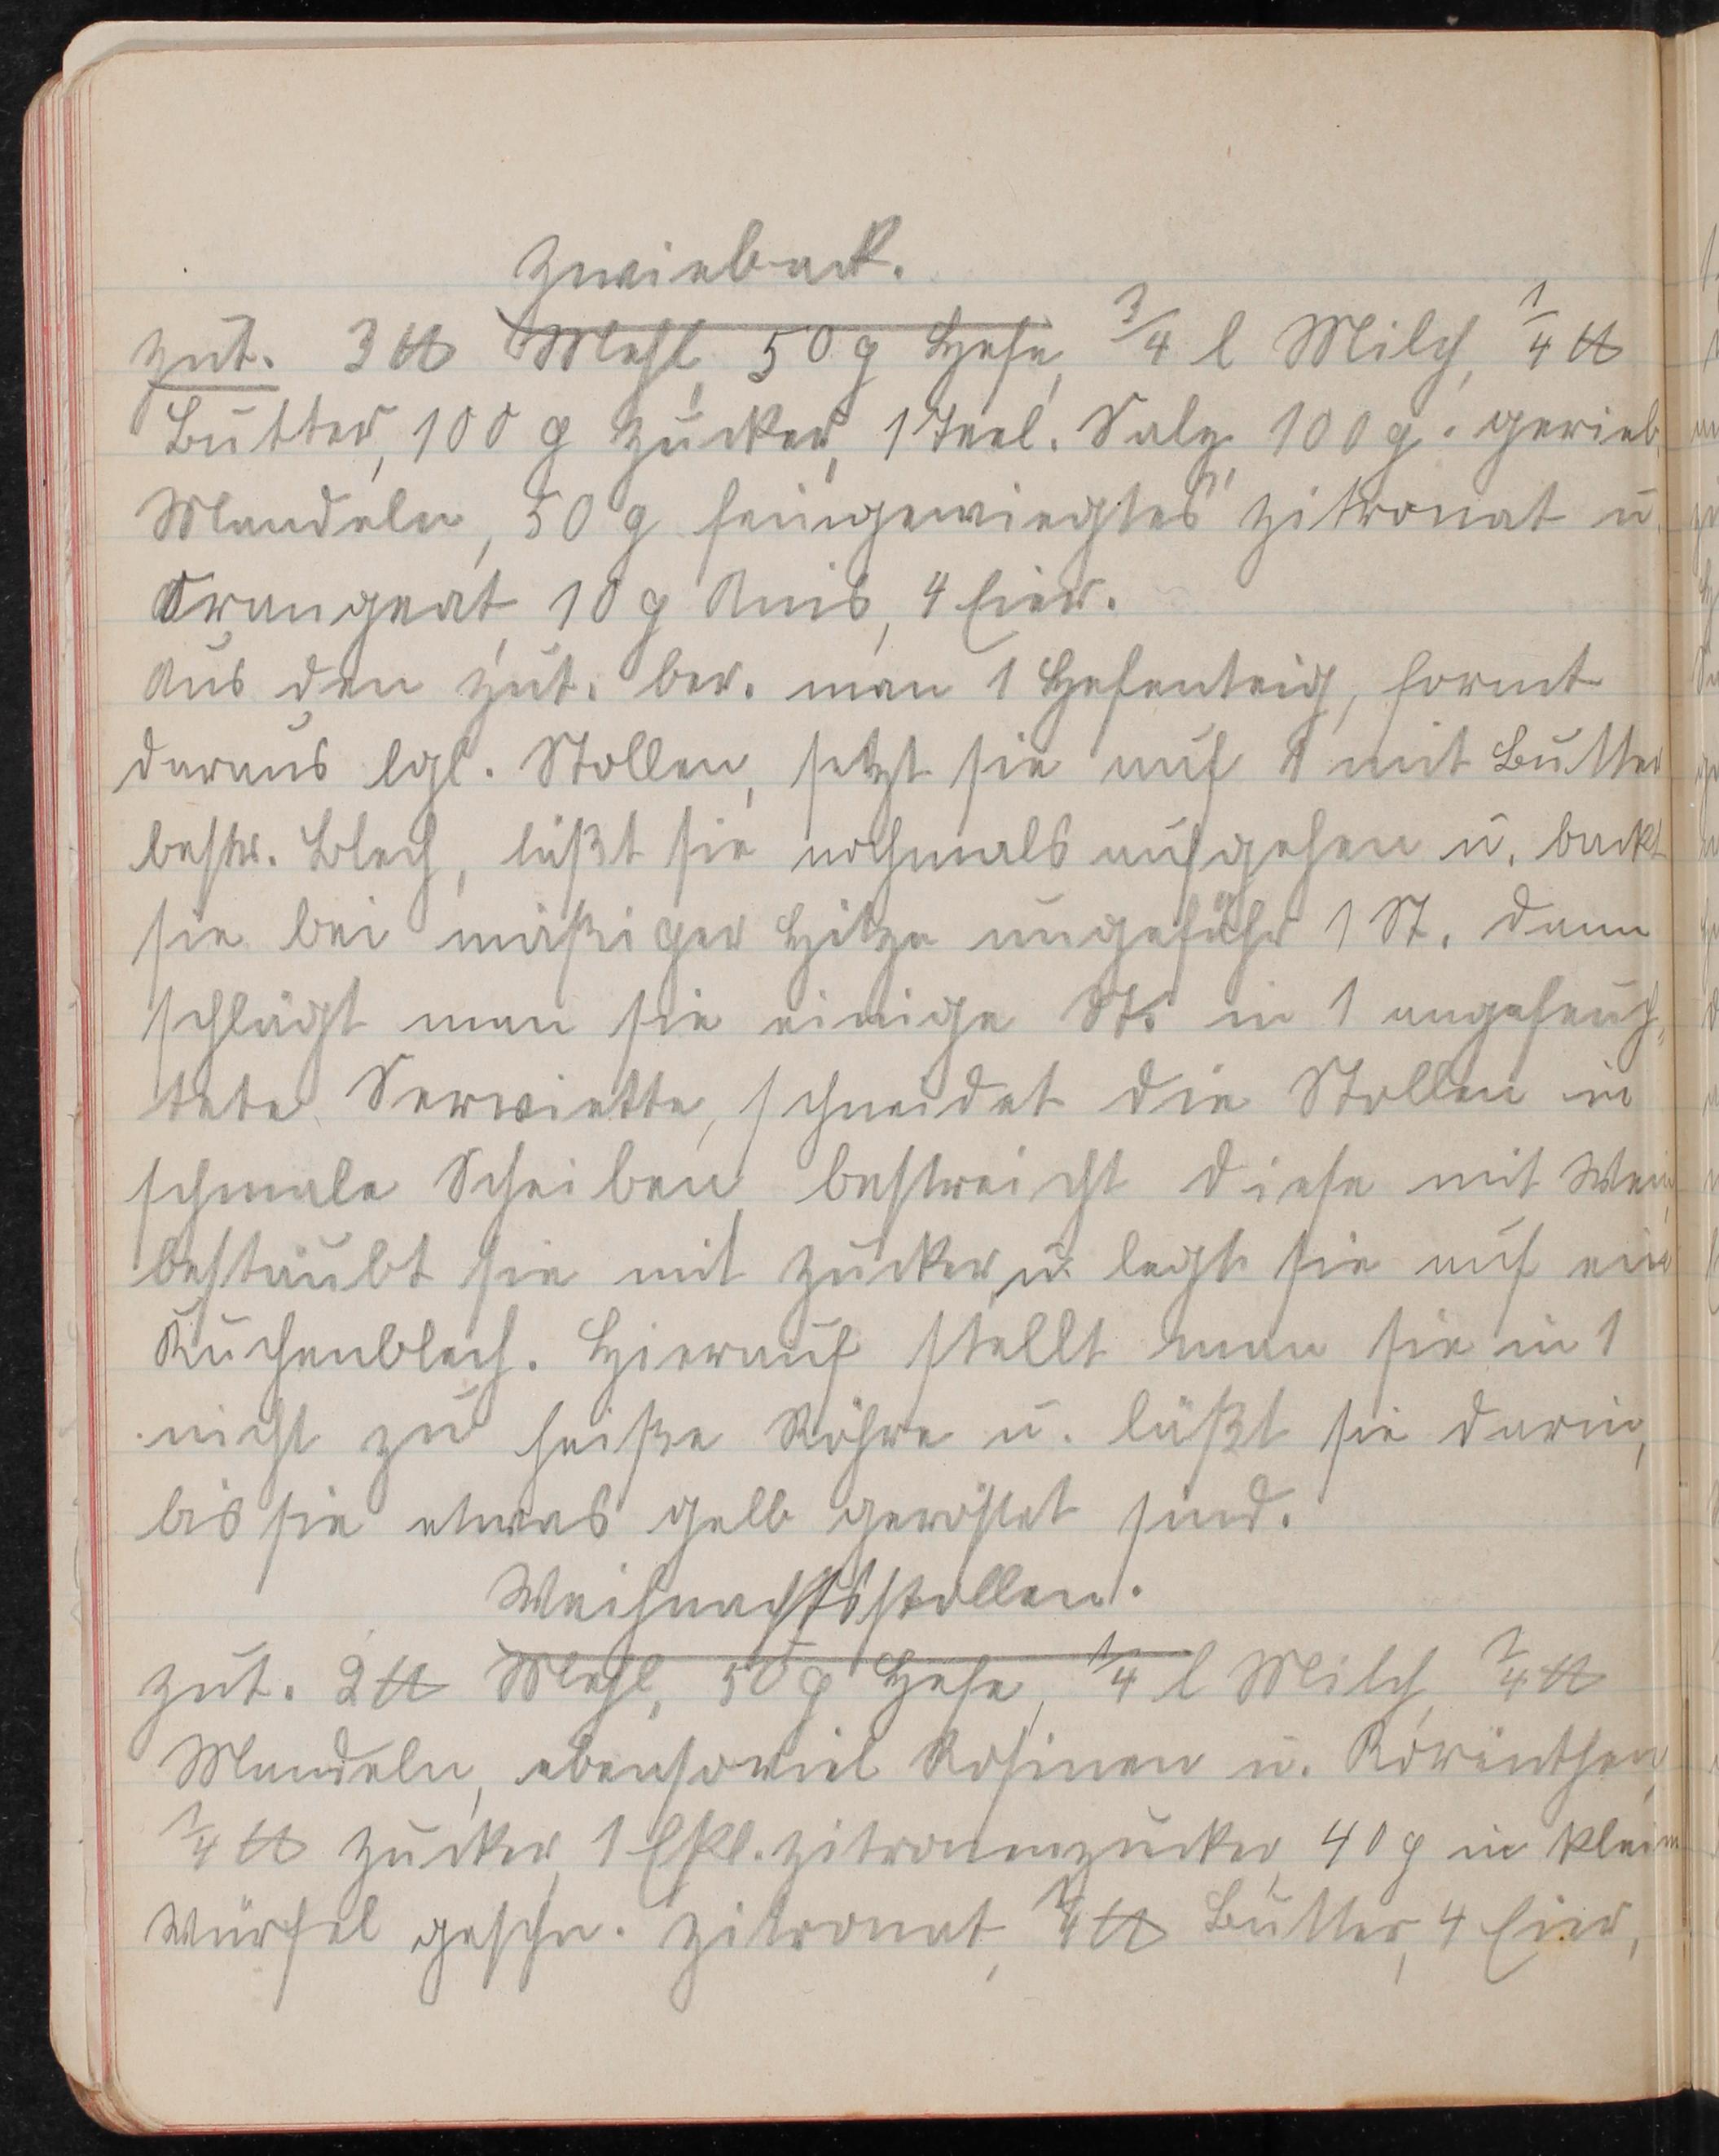 Zwieback.
Zut. 3 ℔ Mehl, 50 g Hefe, 3/4 l Milch, 1/4 ℔
Butter, 100 g Zucker, 1 Teel. Salz, 100 g. gerieb.
Mandeln, 50 g feingewiegtes Zitronat u.
Orangeat, 10 g Anis, 4 Eier.
Aus den Zut. ber. man 1 Hefenteig, formt
daraus lgl. Stollen, setzt sie auf 1 mit Butter
bestr. Blech, läßt sie nochmals aufgehen u. backt
sie bei mäßiger Hitze ungefähr 1 St. Dann
schlägt man sie einige St. in 1 angefeuch„
tete Serviette, schneidet die Stollen in
schmale Scheiben, bestreicht diese mit Wein,
bestäubt sie mit Zucker, u. legt sie auf ein
Kuchenblech. Hierauf stellt man sie in 1
nicht zu heiße Röhre u. läßt sie darin,
bis sie etwas gelb geröstet sind.
Weihnachtsstollen.
Zut. 2 ℔ Mehl, 50 g Hefe, 1/4 l Milch, 1/4 ℔
Mandeln, ebensoviel Rosinen u. Korinthen,
1/4 ℔ Zucker, 1 Eßl. Zitronenzucker, 40 g in klein
Würfel geschn. Zitronat, 1/4 ℔ Butter, 4 Eier,